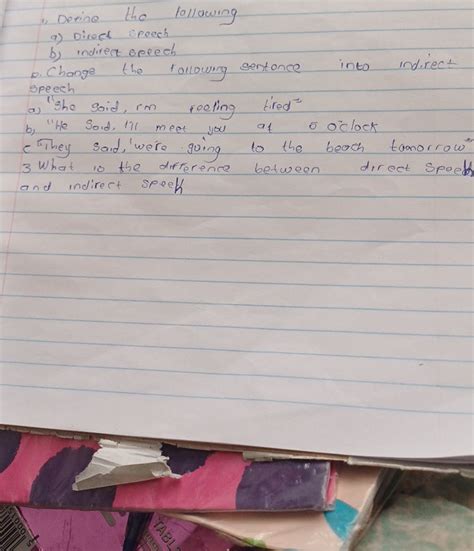 1, Define the following
a) Direct speech
b) indirect speech
2. Change the following sentence into indirect
speech
a) "She said, I'm feeling tired"
b) "He said, I'll meet you at 6 o'clock
c "They said, 'we're going to the beach tomorrow"
3. What is the difference between direct speech
and indirect speech
TABL